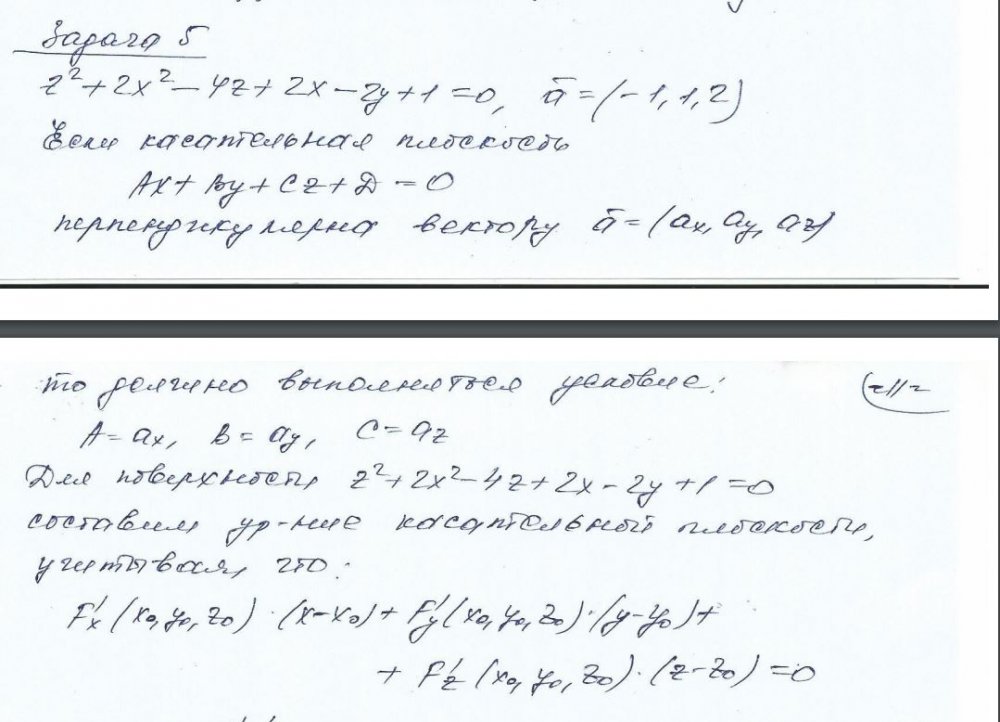 Задача 5
z² + 2x² − 4z + 2x − 2y + 1 = 0, ā = (−1, 1, 2)
Если касательная плоскость
Ax + By + Cz + D = 0
перпендикулярна вектору ā = (ax, ay, az)
то должно выполняться условие:
A = ax, B = ay, C = az
Для поверхности z² + 2x² − 4z + 2x − 2y + 1 = 0
составим ур-ние касательной плоскости,
учитывая, что:
F'x (x0, y0, z0) · (x − x0) + F'y (x0, y0, z0) · (y − y0) +
+ F'z (x0, y0, z0) · (z − z0) = 0